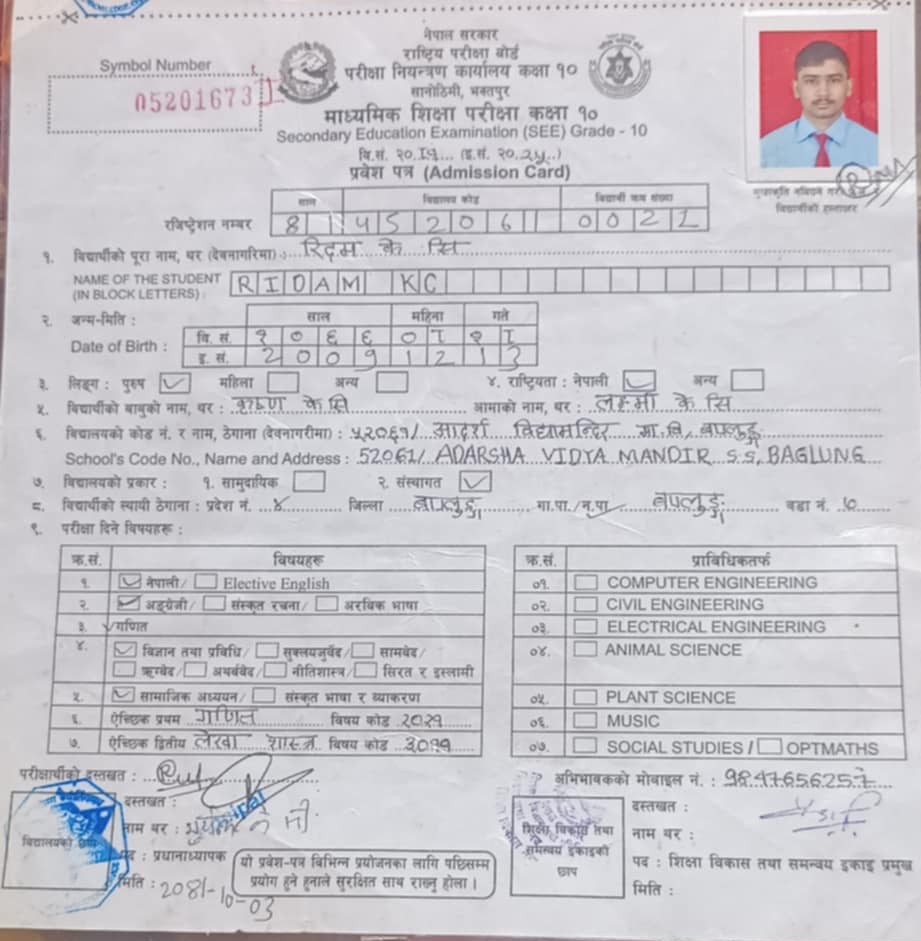 नेपाल सरकार
राष्ट्रिय परीक्षा बोर्ड
परीक्षा नियन्त्रण कार्यालय कक्षा १०
सानोठिमी, भक्तपुर
Symbol Number
05201673
माध्यमिक शिक्षा परीक्षा कक्षा १०
Secondary Education Examination (SEE) Grade - 10
वि.सं. २० (इ.सं. २०
प्रवेश पत्र (Admission Card)
विद्यार्थीको हस्ताक्षर
साल विद्यालय कोड विद्यार्थी क्रम संख्या
रजिष्ट्रेशन नम्बर 8 1 452061 0021
१. विद्यार्थीको पूरा नाम, थर (देवनागरिमा) : रिदम के सि
NAME OF THE STUDENT (IN BLOCK LETTERS) : RIDAM KC
२. जन्म-मिति : साल महिना गते
Date of Birth : वि. सं. २०६६
इ. सं. 2009 12 13
३. लिङ्ग : पुरुष ✓ महिला अन्य ४. राष्ट्रियता : नेपाली ✓ अन्य
५. विद्यार्थीको बाबुको नाम, थर : के सि आमाको नाम, थर : लक्ष्मी के सि
६. विद्यालयको कोड नं. र नाम, ठेगाना (देवनागरीमा) : ५२०६१/ आदर्श विद्यामन्दिर मा.वि, बागलुङ्ग
School's Code No., Name and Address : 52061/ ADARSHA VIDYA MANDIR S.S, BAGLUNG
७. विद्यालयको प्रकार : १. सामुदायिक २. संस्थागत ✓
८. विद्यार्थीको स्थायी ठेगाना : प्रदेश नं. ४ जिल्ला बागलुङ्ग गा.पा./न.पा. बागलुङ्ग वडा नं. ७
९. परीक्षा दिने विषयहरू :
क्र.सं. विषयहरू
१. ✓ नेपाली/ Elective English
२. ✓ अङ्ग्रेजी/ संस्कृत रचना/ अरबिक भाषा
३. ✓ गणित
४. ✓ विज्ञान तथा प्रविधि/ शुक्लयजुर्वेद/ सामवेद/
ऋग्वेद/ अथर्ववेद/ नीतिशास्त्र/ सिरत र इस्लामी
५. ✓ सामाजिक अध्ययन/ संस्कृत भाषा र व्याकरण
६. ऐच्छिक प्रथम गणित विषय कोड
७. ऐच्छिक द्वितीय लेखा शास्त्र विषय कोड
क्र.सं. प्राविधिकतर्फ
०१. COMPUTER ENGINEERING
०२. CIVIL ENGINEERING
०३. ELECTRICAL ENGINEERING
०४. ANIMAL SCIENCE
०५. PLANT SCIENCE
०६. MUSIC
०७. SOCIAL STUDIES / OPTMATHS
परीक्षार्थीको दस्तखत :
अभिभावकको मोबाइल नं. : 9847656257
विद्यालयको छाप
दस्तखत :
नाम थर :
पद : प्रधानाध्यापक
मिति : 2081-10-03
यो प्रवेश-पत्र विभिन्न प्रयोजनका लागि पछिसम्म
प्रयोग हुने हुनाले सुरक्षित साथ राख्नु होला ।
शिक्षा विकास तथा
समन्वय इकाइको
छाप
दस्तखत :
नाम थर :
पद : शिक्षा विकास तथा समन्वय इकाइ प्रमुख
मिति :